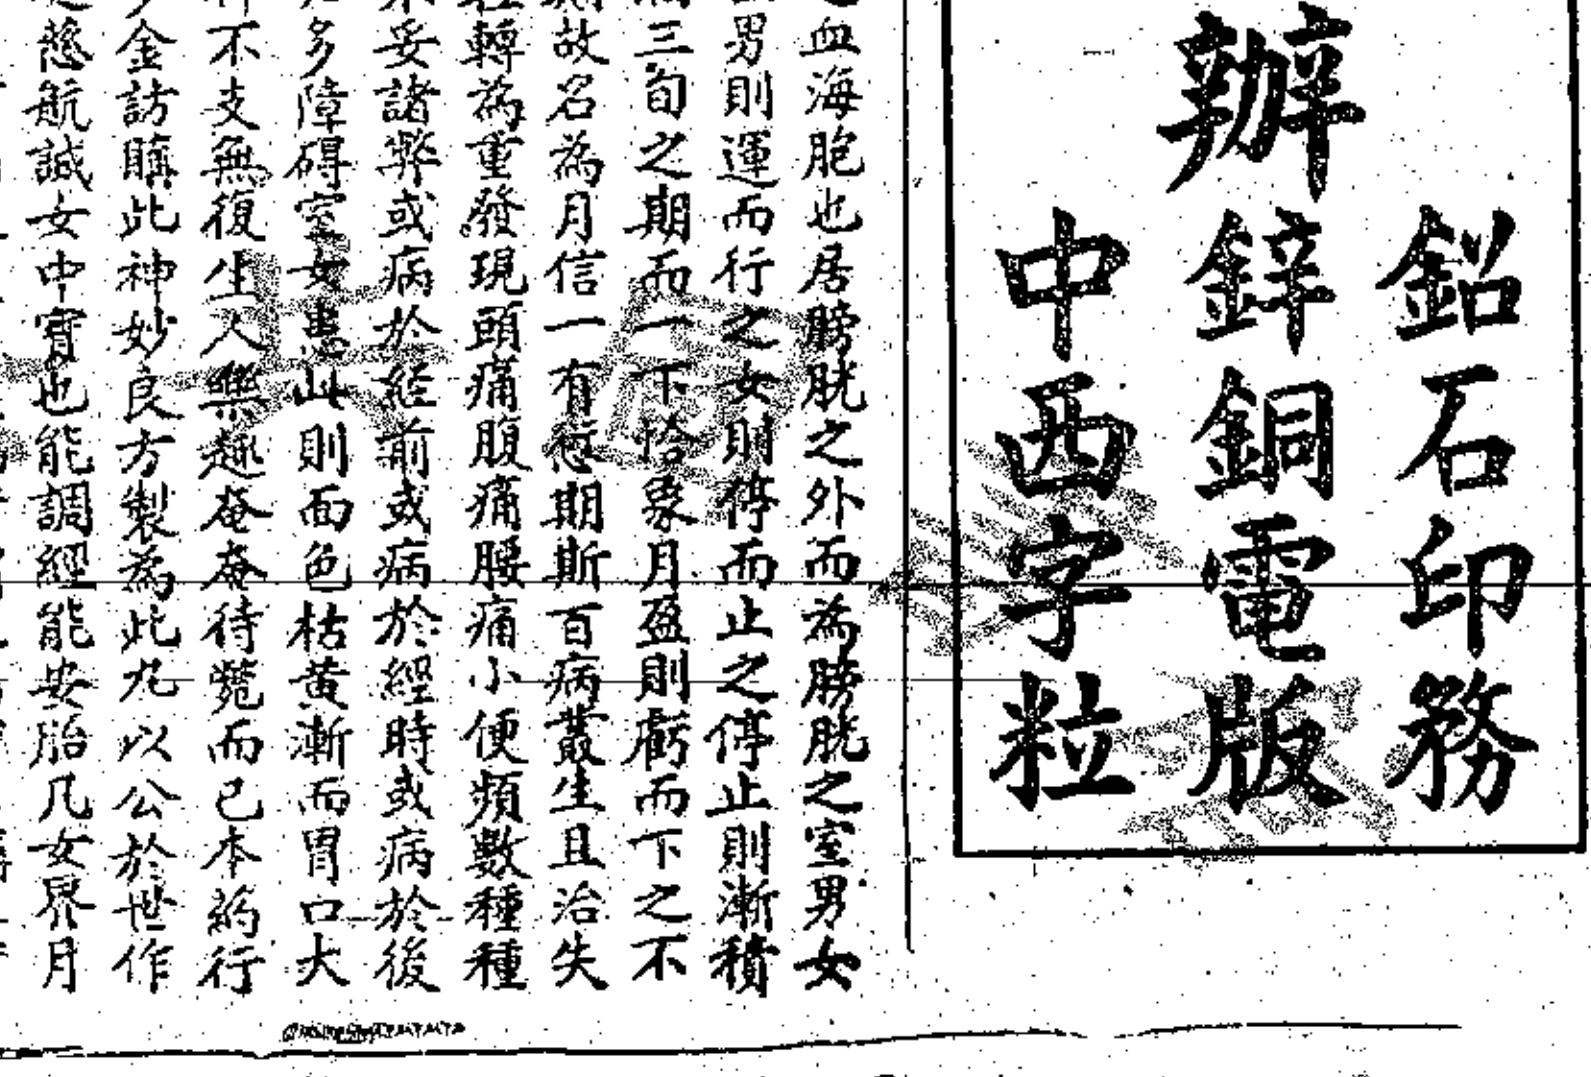 辦
鉛石印務
鋅銅電版
中西字粒
血海胞也居膀胱之外而為膀胱之室男女
男則運而行之女則停而止之停止則漸積
三旬之期而一下恰象月盈則虧而下之不
故名為月信一有愆期斯百病叢生且治失
轉為重發現頭痛腹痛腰痛小便頻數種種
妥諸弊或病於經前或病於經時或病於後
多障碍室女患此則面色枯黃漸而胃口大
不支無復生人樂趣奄奄待斃而已本葯行
金訪購此神妙良方製為此丸以公於世作
慈航誠女中寶也能調經能安胎凡女界月